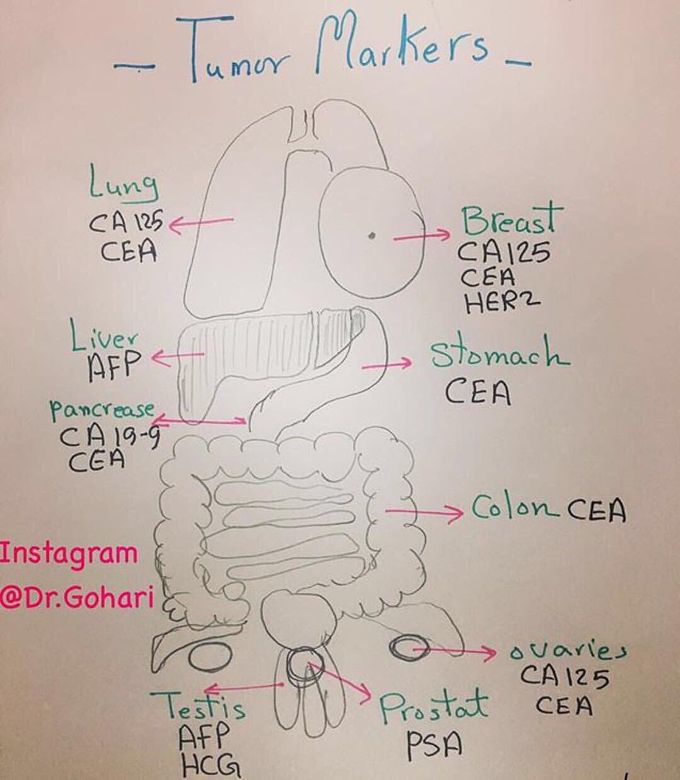 - Tumor Markers -
Lung
CA 125
CEA
Breast
CA125
CEA
HER2
Liver
AFP
Stomach
CEA
Pancrease
CA 19-9
CEA
Colon CEA
Instagram
@Dr.Gohari
ovaries
CA 125
CEA
Testis
AFP
HCG
Prostat
PSA